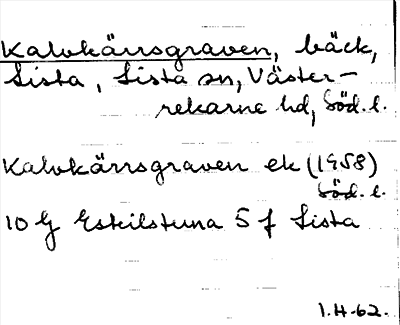 Kalvkärrsgraven, bäck,
Lista, Lista sn, Väster-
rekarne hd, Söd. l.
Kalvkärrsgraven ek (1958)
Söd. l.
10 G Eskilstuna 5 f Lista
1.H.62.